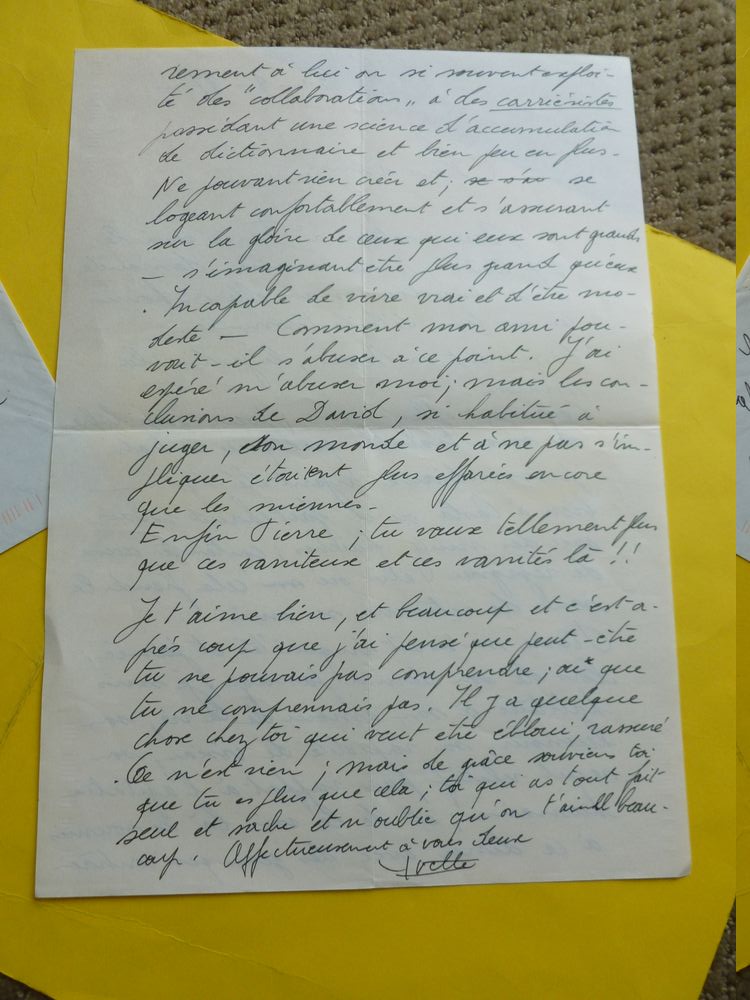 rement à lui on si souvent exploi-
té des "collaborations" à des carriéristes
possédant une science d'accumulation
de dictionnaire et bien peu en plus.
Ne pouvant rien créer et, se
logeant confortablement et s'assurant
sur la gloire de ceux qui eux sont grands
— s'imaginant etre plus grand qu'eux
. Incapable de vivre vrai et d'être mo-
deste — Comment mon ami pou-
vait-il s'abuser à ce point. J'ai
espéré m'abuser moi; mais les con-
clusions de David, si habitué à
juger, son monde et à ne pas s'im-
pliquer étaient plus effarées encore
que les miennes.
Enfin Pierre ; tu vaux tellement plus
que ces vaniteux et ces vanités là !!
Je t'aime bien, et beaucoup et c'est a-
près coup que j'ai pensé que peut-être
tu ne pouvais pas comprendre ; que
tu ne comprennais pas. Il y a quelque
chose chez toi qui veut etre ébloui, rassuré
. Ce n'est rien ; mais de grâce souviens toi
que tu es plus que cela ; toi qui as tout fait
seul et sache et n'oublie qu'on t'aime beau-
coup. Affectueusement à vous deux
Yvette